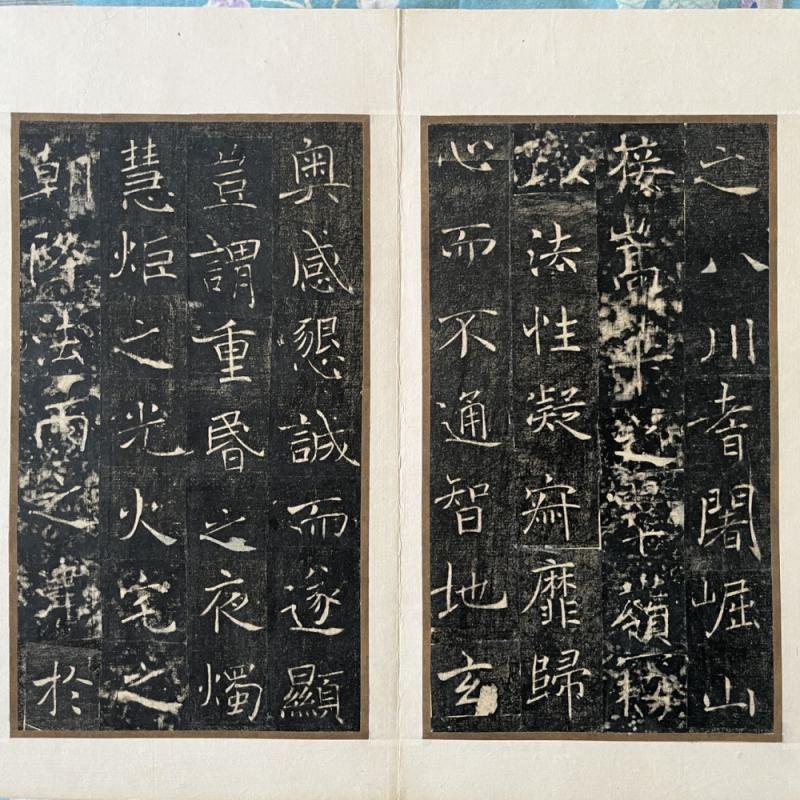 之八川耆闍崛山
接嵩華之翠嶺竊
以法性凝寂靡歸
心而不通智地玄
奧感懇誠而遂顯
豈謂重昬之夜燭
慧炬之光火宅之
朝降法雨之澤於